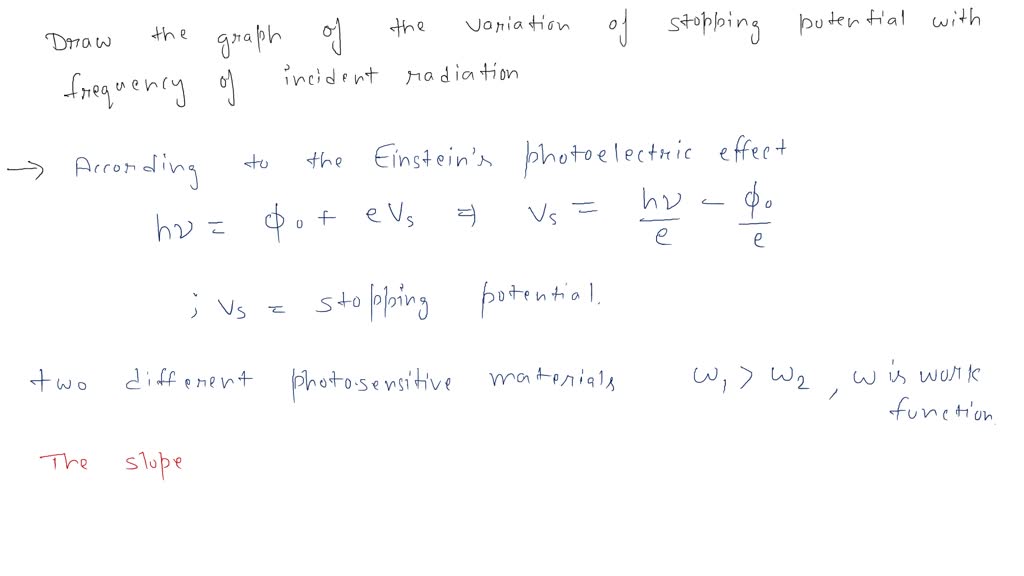 Draw the graph of the variation of stopping potential with
frequency of incident radiation
→ According to the Einstein's photoelectric effect
hν = ϕ₀ + eVₛ ⇒ Vₛ = hν/e - ϕ₀/e
; Vₛ = stopping potential.
two different photosensitive materials ω₁ > ω₂ , ω is work
function.
The slope